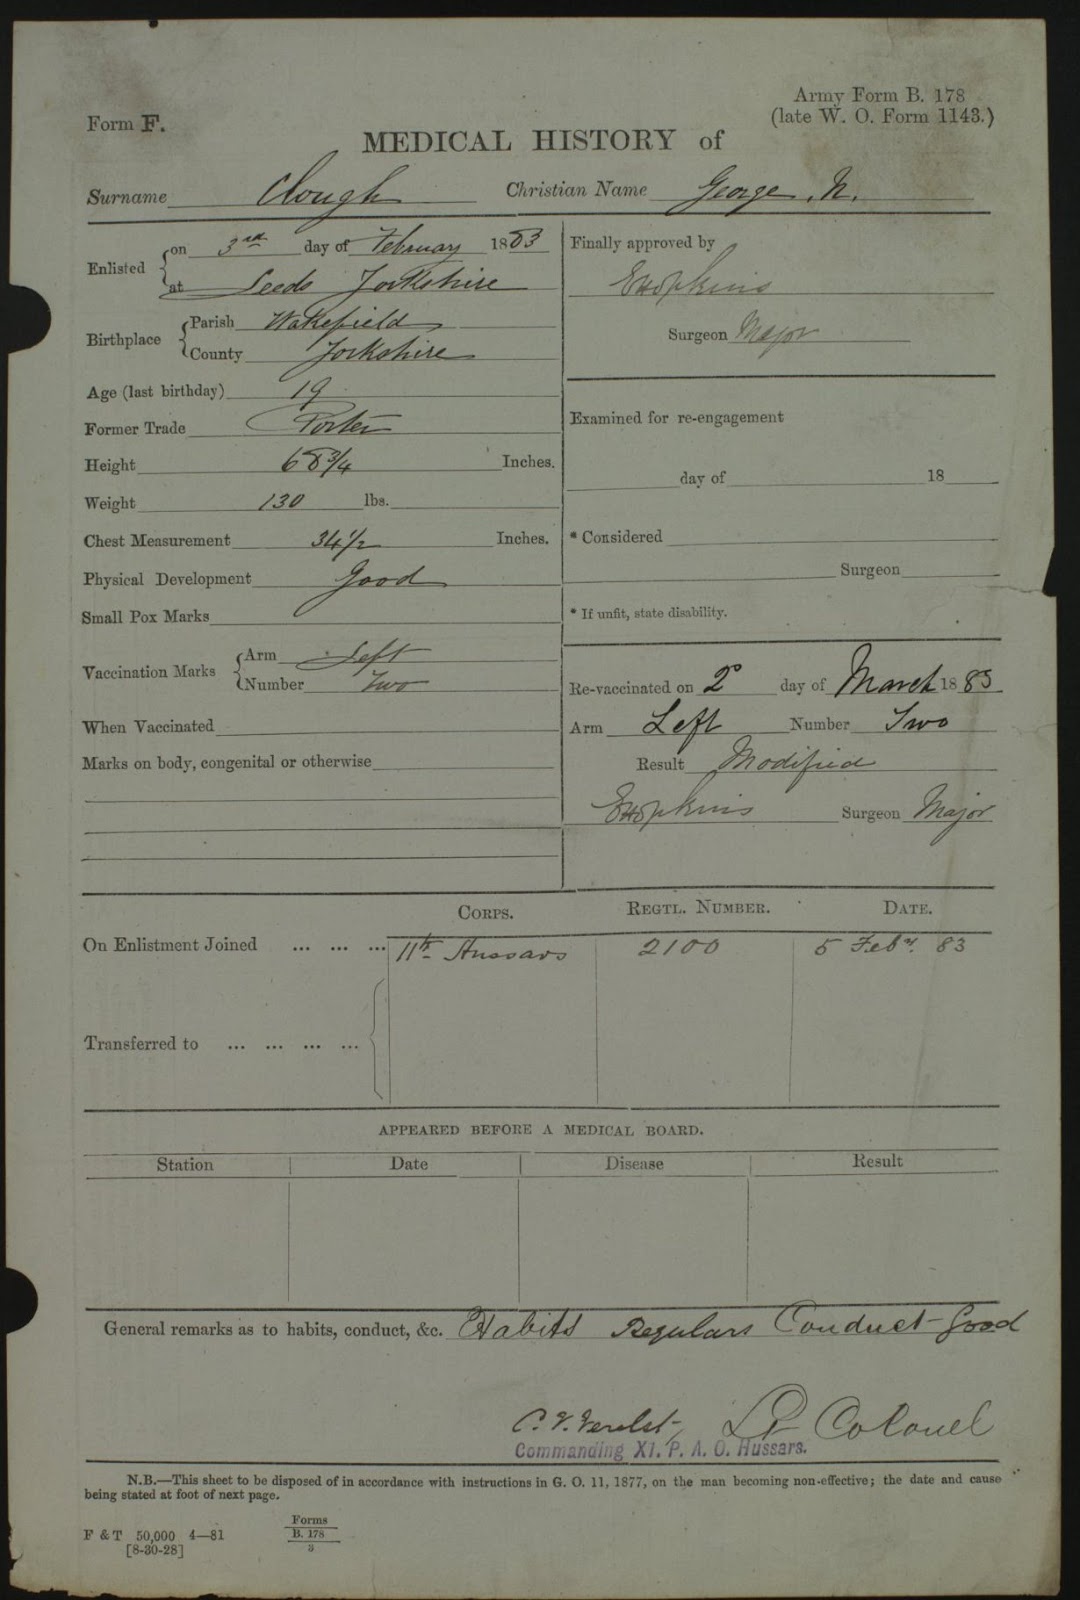 Army Form B. 178
(late W. O. Form 1143.)
Form F.
MEDICAL HISTORY of
Surname Clough Christian Name George. N.
Enlisted on 3rd day of February 1883
at Leeds Yorkshire
Birthplace Parish Wakefield
County Yorkshire
Age (last birthday) 19
Former Trade Porter
Height 68 3/4 Inches.
Weight 130 lbs.
Chest Measurement 34 1/2 Inches.
Physical Development Good
Small Pox Marks
Vaccination Marks Arm Left
Number Two
When Vaccinated
Marks on body, congenital or otherwise
Finally approved by
EHopkins
Surgeon Major
Examined for re-engagement
day of 18
* Considered
Surgeon
* If unfit, state disability.
Re-vaccinated on 2º day of March 1883
Arm Left Number Two
Result Modified
EHopkins Surgeon Major
CORPS. REGTL. NUMBER. DATE.
On Enlistment Joined ... ... ... 11th Hussars 2100 5 Feby. 83
Transferred to ... ... ... ...
APPEARED BEFORE A MEDICAL BOARD.
Station Date Disease Result
General remarks as to habits, conduct, &c. Habits Regulars Conduct-Good
Lt Colonel
Commanding XI. P. A. O. Hussars.
N.B.—This sheet to be disposed of in accordance with instructions in G. O. 11, 1877, on the man becoming non-effective; the date and cause
being stated at foot of next page.
F & T 50,000 4—81
[8-30-28]
Forms
B. 178
3